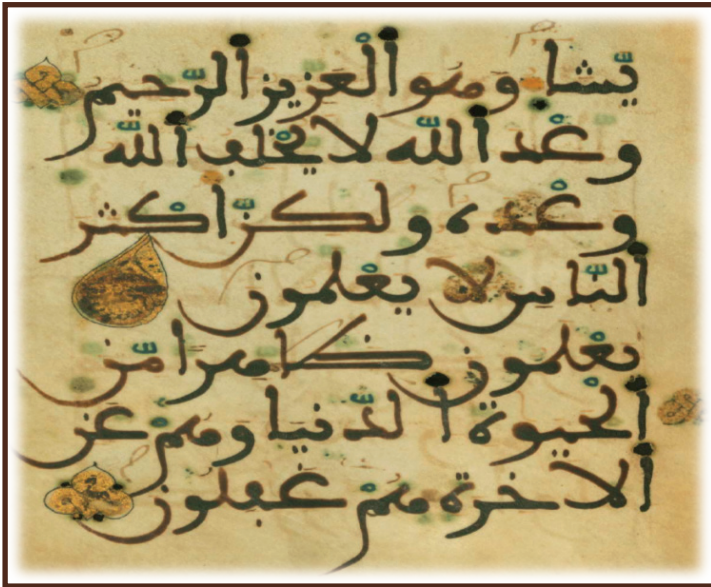 يّشا وهو الْعزيز الرّحيم
وعْد اللّه لا يخْلف اللّه
وعْده ولكنّ اكْثر
النّاس لا يعْلمون
يعْلمون ظاهرا مّن
الْحيوة الدّنيا وهمْ عن
الاخرة همْ غفلون